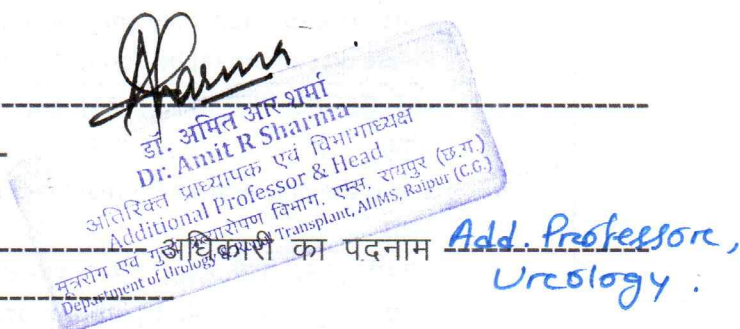 Sharma
डॉ. अमित आर शर्मा
Dr. Amit R Sharma
अतिरिक्त प्राध्यापक एवं विभागाध्यक्ष
Additional Professor & Head
मूत्ररोग एवं गुर्दा प्रत्यारोपण विभाग, एम्स, रायपुर (छ.ग.)
Department of Urology & Renal Transplant, AIIMS, Raipur (C.G.)
अधिकारी का पदनाम Add. Professore,
Urology.